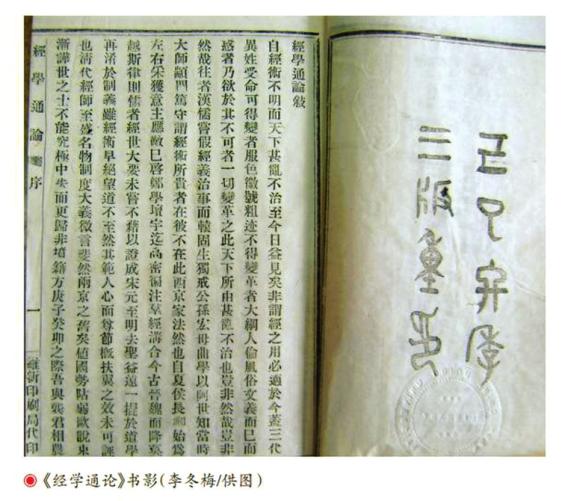 三版重
經學通論敍
自經術不明而天下甚亂不治至今日益見矣非謂經之用必適於今葢三代
異姓受命可得變者服色徽號粗迹不得變革者大綱人倫風俗文義而已而
惑者乃欲於其不可者一切變革之此天下所由甚亂不治也豈非然哉豈非
然哉往者漢儒嘗假經義治事而轅固生獨戒公孫宏毋曲學以阿世知當時
大師顓門篤守謂經術所貴者在彼不在此西京家法然也自夏侯長卿始爲
左右采獲意主應敵已啓鄭學壇宇迄高密徧注羣經溝合今古晉魏而降莫
越斯律則儒者經世大要未嘗不藉以證成宋元至明去聖益遠一提於道學
再淆於制義雖經術早絕望道不至然其範人心而尊節槪扶翼之效未可誣
也清代經師至蕃名物制度大義微言斐然兩京之舊矣値國勢阽弱歐說東
漸譁世之士不能究極中失而更歸非墳籍方庚子癸卯之際吾與龔君相農
經學通論 序 一 維新印刷局代印
《经学通论》书影(李冬梅/供图)